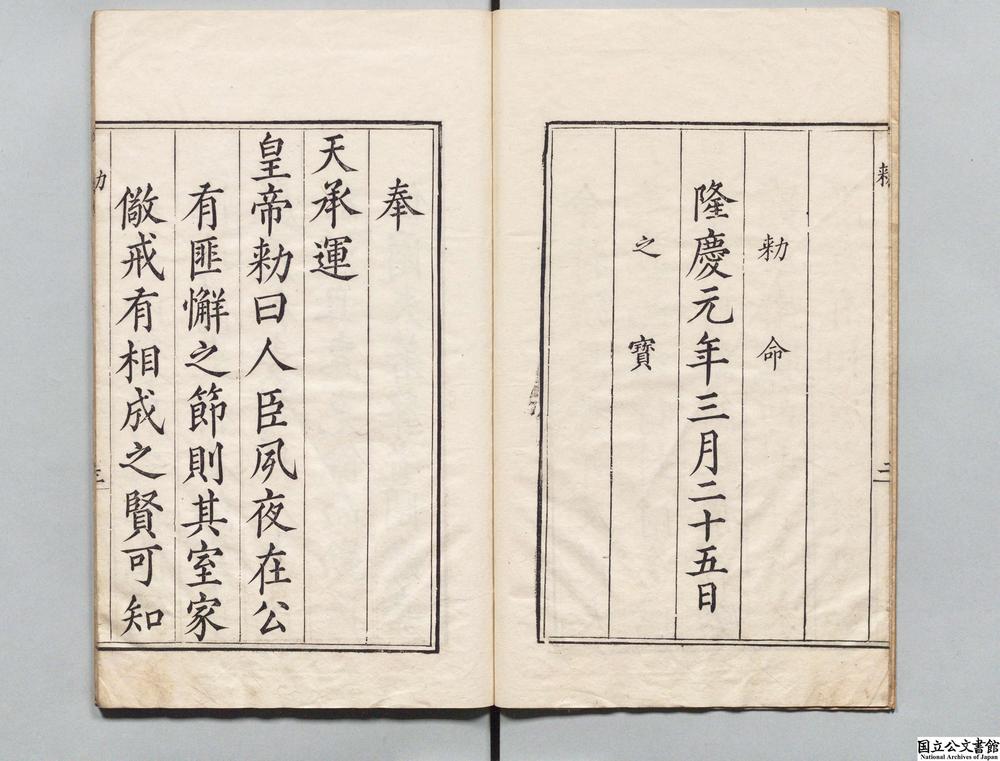 勑
二
勑命
隆慶元年三月二十五日
之寶
奉
天承運
皇帝勑曰人臣夙夜在公
有匪懈之節則其室家
儆戒有相成之賢可知
国立公文書館
National Archives of Japan